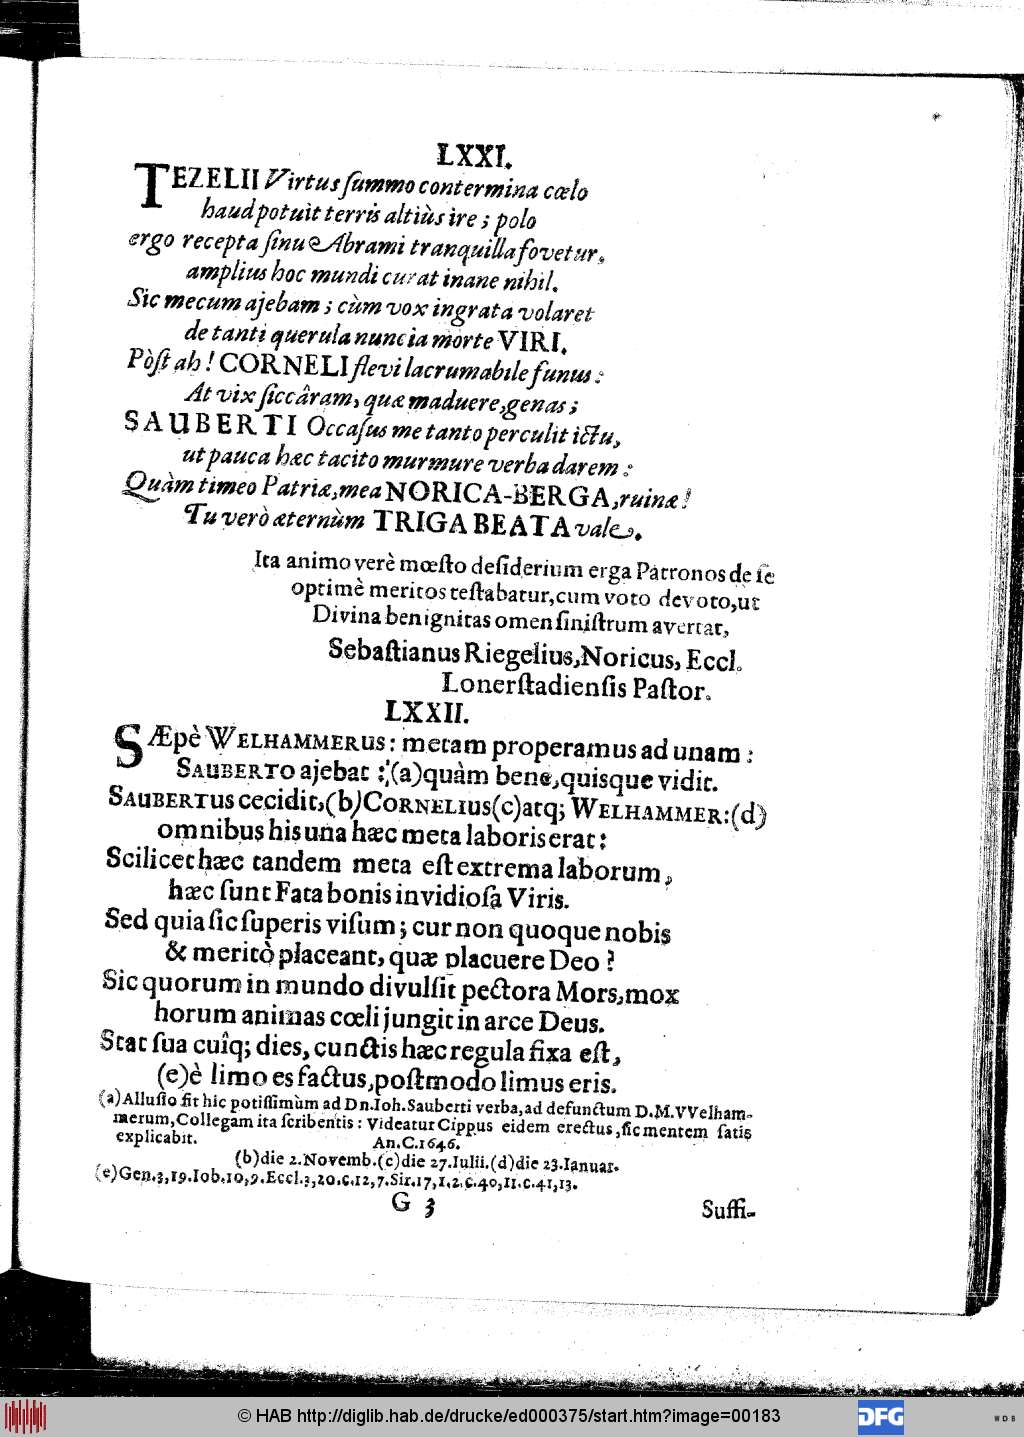 LXXI.
TEZELII Virtus ſummo contermina cœlo
haud potuit terris altiùs ire; polo
ergo recepta ſinu Abrami tranquilla fovetur,
amplius hoc mundi curat inane nihil.
Sic mecum ajebam; cùm vox ingrata volaret
de tanti querula nuncia morte VIRI.
Pòſt ah! CORNELI flevi lacrumabile funus:
At vix ſiccâram, quæ maduere, genas;
SAUBERTI Occaſus me tanto perculit ictu,
ut pauca hæc tacito murmure verba darem:
Quàm timeo Patriæ, mea NORICA-BERGA, ruinæ!
Tu verò æternùm TRIGA BEATA vale.
Ita animo verè mœſto deſiderium erga Patronos de ſe
optimè meritos teſtabatur, cum voto devoto, ut
Divina benignitas omen ſiniſtrum avertat,
Sebaſtianus Riegelius, Noricus, Eccl.
Lonerſtadienſis Paſtor.
LXXII.
SÆpè WELHAMMERUS: metam properamus ad unam:
SAUBERTO ajebat: (a) quàm bene, quisque vidit.
SAUBERTus cecidit, (b) CORNELIus (c) atq; WELHAMMER: (d)
omnibus his una hæc meta laboris erat:
Scilicet hæc tandem meta eſt extrema laborum,
hæc ſunt Fata bonis invidioſa Viris.
Sed quia ſic ſuperis viſum; cur non quoque nobis
& meritò placeant, quæ placuere Deo?
Sic quorum in mundo divulſit pectora Mors, mox
horum animas cœli jungit in arce Deus.
Stat ſua cuîq; dies, cunctis hæc regula fixa eſt,
(e) è limo es factus, poſtmodo limus eris.
(a) Alluſio fit hic potiſſimùm ad Dn. Ioh. Sauberti verba, ad defunctum D. M. VVelham-
merum, Collegam ita ſcribentis: Videatur Cippus eidem erectus, ſic mentem ſatis
explicabit. An. C. 1646.
(b) die 2. Novemb. (c) die 27. Iulii. (d) die 23. Ianuar.
(e) Gen. 3, 19. Iob. 10, 9. Eccl. 3, 20. c. 12, 7. Sir. 17, 1. 2. c. 40, 11. c. 41, 13.
G 3 Suffi-
© HAB http://diglib.hab.de/drucke/ed000375/start.htm?image=00183
DFG
WDB